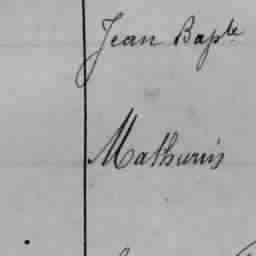 Jean Bapte
Mathurin